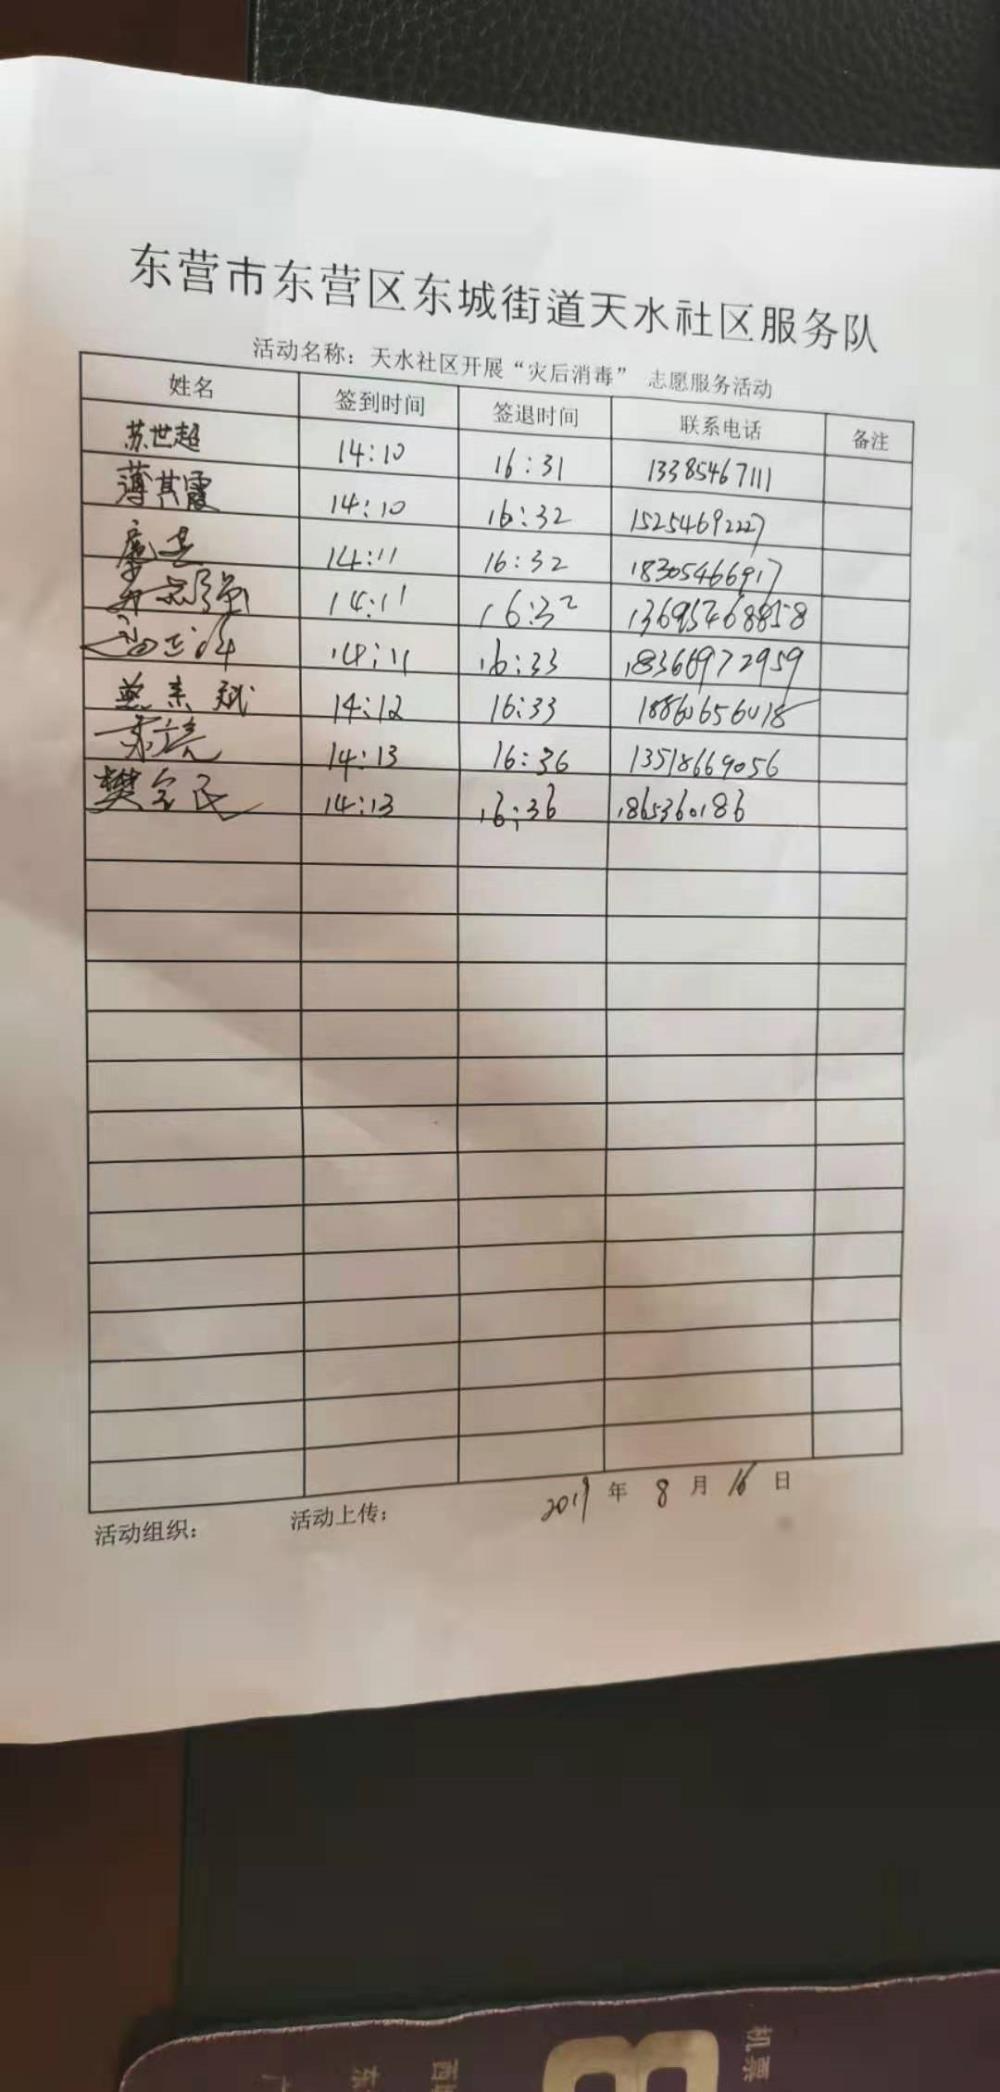 东营市东营区东城街道天水社区服务队
活动名称：天水社区开展“灾后消毒” 志愿服务活动
姓名 签到时间 签退时间 联系电话 备注
苏世超 14:10 16:31 13385467111
薄其霞 14:10 16:32 15254692227
14:11 16:32 18305466917
14:11 16:32 13695468858
14:11 16:33 18366972959
14:12 16:33
14:13 16:36 13518669056
樊宝民 14:13 16:36 1865360186
2019年 8 月 16 日
活动组织： 活动上传：
机票